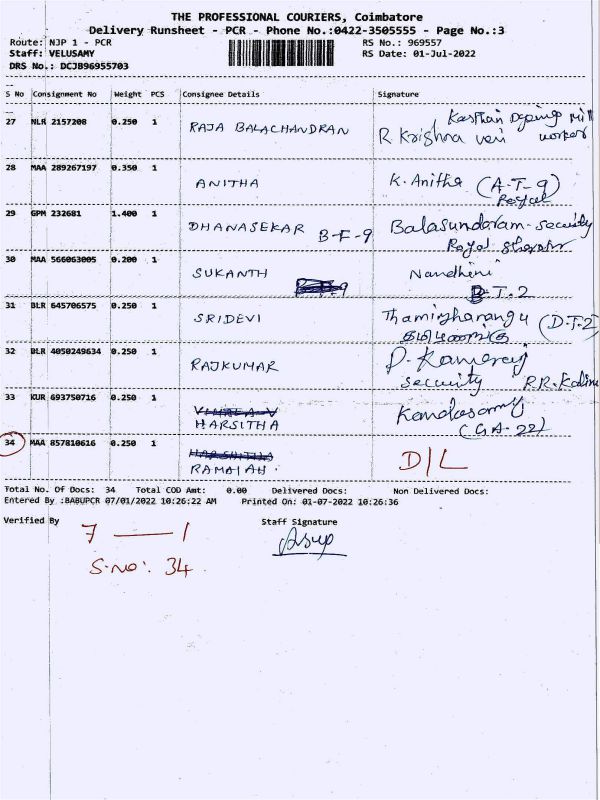 THE PROFESSIONAL COURIERS, Coimbatore
Delivery Runsheet - PCR - Phone No.:0422-3505555 - Page No.:3
Route: NJP 1 - PCR RS No.: 969557
Staff: VELUSAMY RS Date: 01-Jul-2022
DRS No.: DCJB96955703
S No Consignment No Weight PCS Consignee Details Signature
27 NLR 2157208 0.250 1 RAJA BALACHANDRAN R Krishna veni worker
28 MAA 289267197 0.350 1 ANITHA K. Anitha (A-T-9)
Royal
29 GPM 232681 1.400 1 DHANASEKAR B-F-9 Balasundaram - security
Royal
30 MAA 566063005 0.200 1 SUKANTH Nandhini
D.T.2
31 BLR 645706575 0.250 1 SRIDEVI (D.T.2)
32 BLR 4050249634 0.250 1 RAJKUMAR
security R.R.
33 KUR 693750716 0.250 1 HARSITHA Kandasamy
(GA-22)
34 MAA 857810616 0.250 1 RAMAIAH. D/L
Total No. Of Docs: 34 Total COD Amt: 0.00 Delivered Docs: Non Delivered Docs:
Entered By :BABUPCR 07/01/2022 10:26:22 AM Printed On: 01-07-2022 10:26:36
Verified By Staff Signature
7 — 1
S.NO: 34